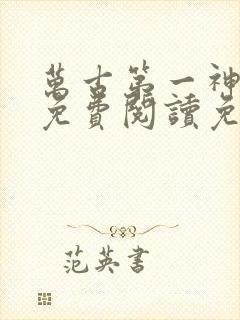 萬古第一神
免費閱讀免
范英書